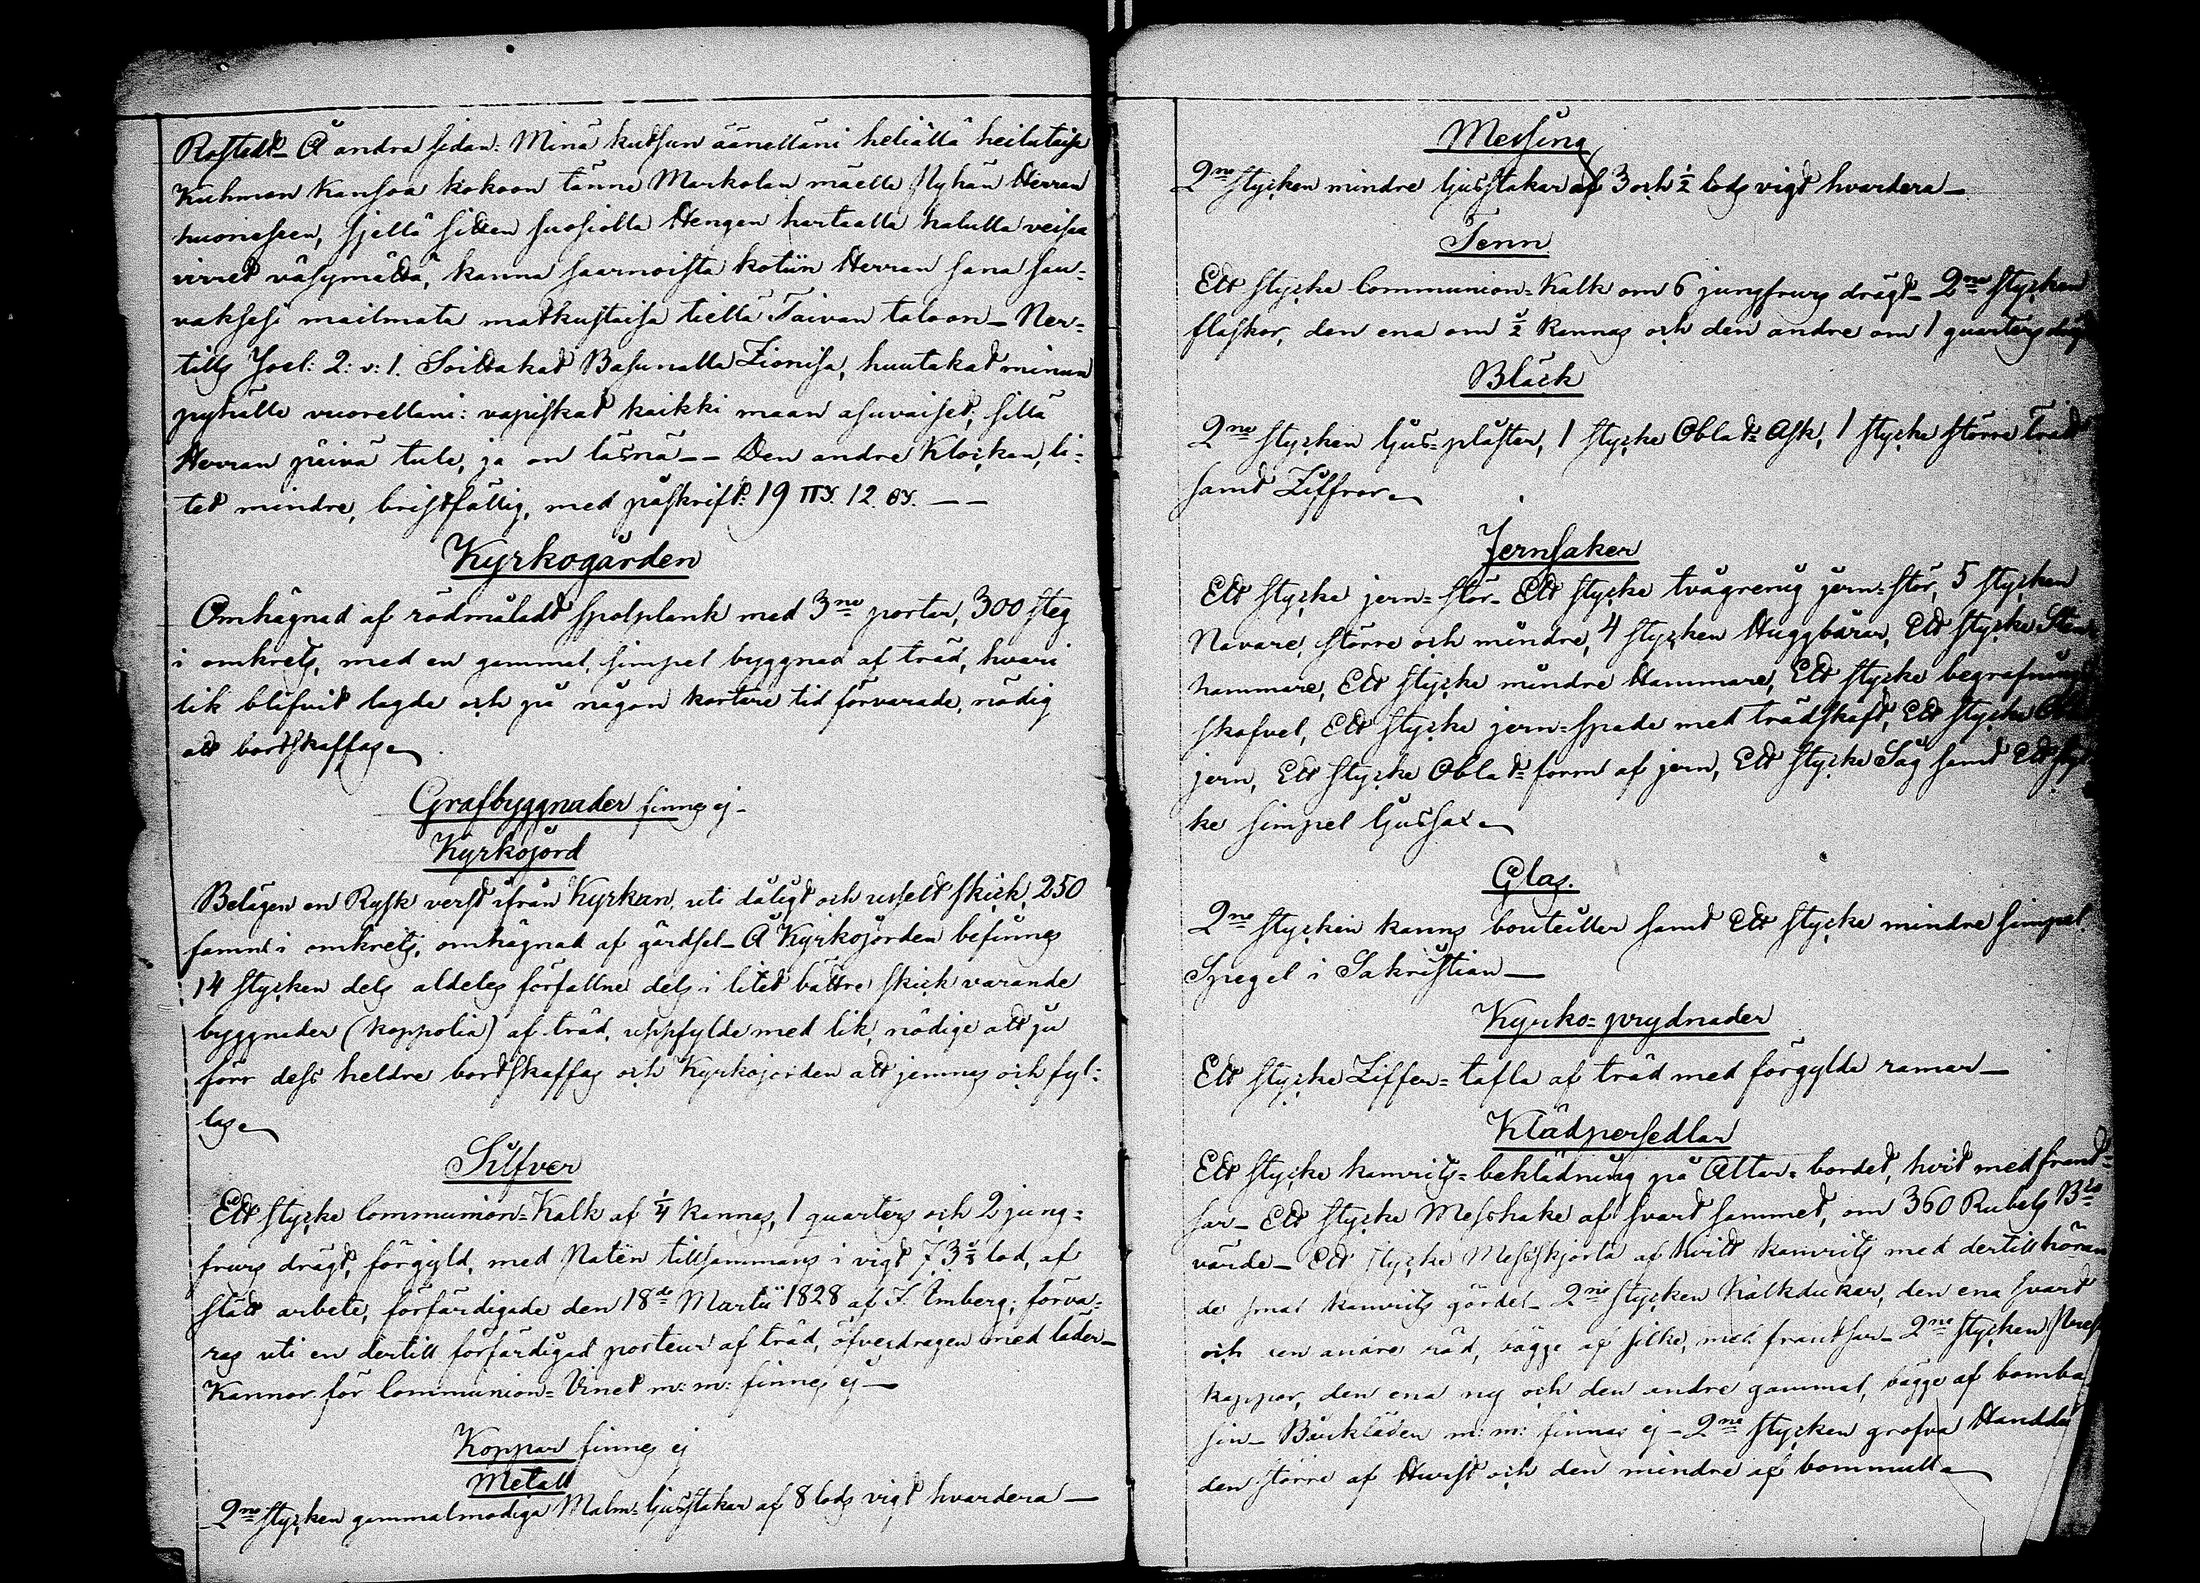 Rostedt_ Å andra sidan: Minä kutsun äänelläni heliällä heiluteisa
Kuhmon Kansoa kokoon tänne Markolan mäelle Pyhän Herran
huonessen, sjellä sitten suosiolla Hengen hartaalla halulla veisaa
virret väsymättä, kanna saarnoista kotiin Herran sana sau-
vaksesi mailmata matkustaisa tiellä Taivan taloon_ Ner-
tills Joel: 2: v: 1. Soittakat Basunalla Zionisa, huutakat minun
pyhällä vuorellani: vapiskat kaikki maan asuvaiset; sillä
Herran päivä tule, ja on läsnä_ _ Den andre Klockan, li-
tet mindre, bristfällig, med påskrift: 19 12
Kyrkogården
Omhägnad af rödmåladt spolplank med 3ne portar, 300 steg
i omkrets, med en gammal, simpel byggnad af träd, hvari
lik blifvit lagde och på någon kortare tid förvarade, nödig
att bortskaffas
Grafbyggnader finnes ej_
Kyrkojord
Belägen en Rysk verst ifrån Kyrkan, uti dåligt och uselt skick, 250
famnar i omkrets, omhägnad af gärdsel_ Å Kyrkojorden befinnes
14 stycken dels aldeles förfallne dels i litet bättre skick varande
byggnader (koppolia) af träd, uppfylde med lik, nödige att ju
förr dess heldre bortskaffas och Kyrkojorden att jemnas och fyl-
las
Silfver
Ett stycke Communion-Kalk af 1/4 kannas, 1 quarters och 2 jung-
frurs drägt, förgyld, med Patén tillsammans i vigt 73 1/2 lod, af
slätt arbete, förfärdigade den 18de Martii 1828 af F. Emberg; förva-
ras uti en dertill förfärdigad porteur af träd, öfverdragen med läder_
Kannor för Communion-Vinet m: m: finnes ej_
Koppar finnes ej
Metall
2ne stycken gammalmodiga Malm-ljusstakar af 8 lods vigt hvardera_
Messing
2ne stycken mindre ljusstakar af 3 och 1/2 lods vigt hvardera_
Tenn
Ett stycke Communion-Kalk om 6 jungfrurs drägt_ 2ne stycken
flaskor, den ena om 1/2 kannas och den andre om 1 quarters drägt
Bläck
2ne stycken ljus-plåtar, 1 stycke Oblat-Ask, 1 stycke större
samt Ziffror
Jernsaker
Ett stycke jern-stör_ Ett stycke tvågrenig jern-stör, 5 stycken
Navare, större och mindre, 4 stycken Huggbårar, Ett stycke Sten-
hammare, Ett stycke mindre Hammare, Ett stycke begrafnings
skofvel, Ett stycke jern-spade med trädskaft, Ett stycke
jern, Ett stycke Oblat-form af jern, Ett stycke Såg samt Ett styc-
ke simpel ljussax
Glas.
2ne stycken kanns bouteiller samt Ett stycke mindre simpel
Spegel i Sakristian_
Kyrko-prydnader
Ett stycke Ziffer-tafla af träd med förgylda ramar_
Klädpersedlar
Ett stycke kamrits-beklädning på Altar-bordet, hvit med frant-
sar_ Ett stycke Messhake af svart sammet, om 360 Rubels Bco
värde_ Ett stycke Messkjorta af hvitt kamrits med dertill höran
de smal kamrits gördel_ 2ne stycken Kalkdukar, den ena svart
och den andre röd, bägge af silke, med frantsar_ 2ne stycken
kappor, den ena ny och den andre gammal, bägge af bomba
sin_ Bårkläden m: m: finnas ej_ 2ne stycken grofva Handdu
den större af Hurst och den mindre af bommull